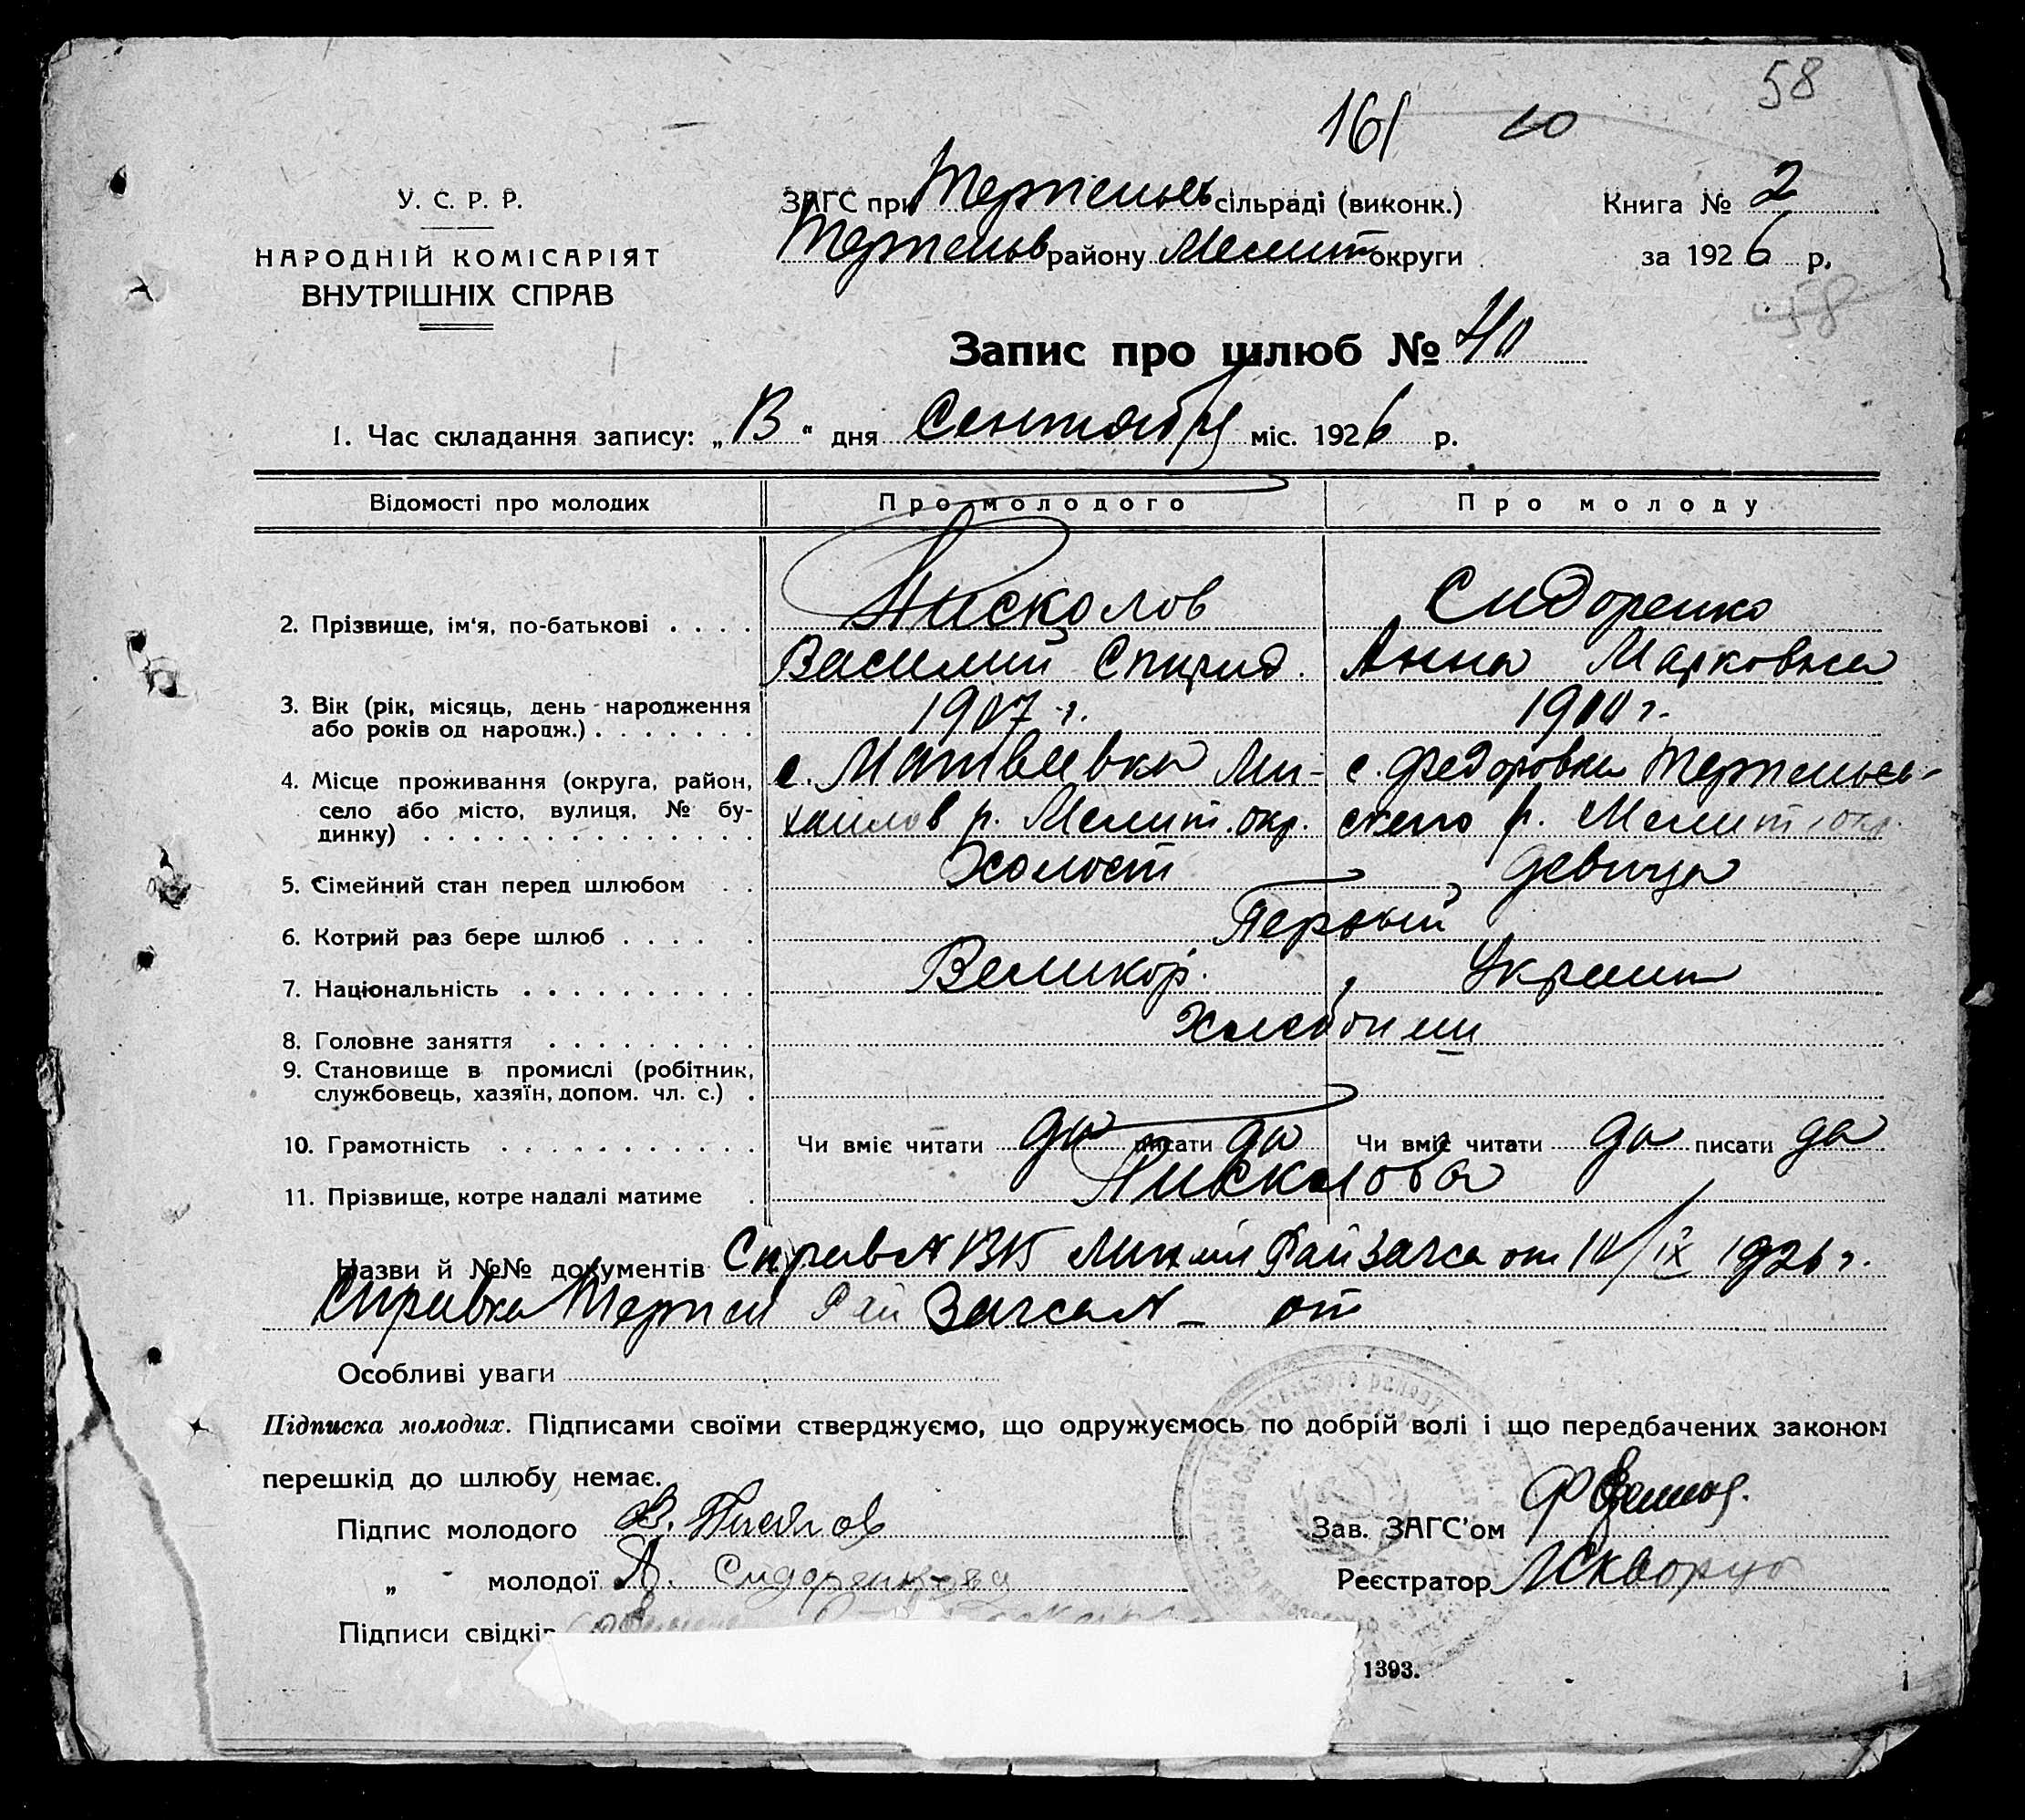 58
161 10
У. С. Р. Р.
НАРОДНІЙ КОМІСАРІЯТ
ВНУТРІШНІХ СПРАВ
ЗАГС при Терпеньев сільраді (виконк.)
Терпеньев району Мелит округи
Книга № 2
за 1926 р.
58
Запис про шлюб № 40
1. Час складання запису: „13“ дня Сентября міс. 1926 р.
Відомості про молодих Про молодого Про молоду
2. Прізвище, ім'я, по-батькові . . . . Писколов Сидоренко
Василий Спирид. Анна Марковна
3. Вік (рік, місяць, день народження 1907 г. 1900 г.
або років од народж.) . . . . . . .
4. Місце проживання (округа, район, с. Матвеевка Ми- с. Федоровка Терпеньев-
село або місто, вулиця, № бу- хайлов р. Мелит. окр. ского р. Мелит. окр.
динку) . . . . . . . . . . . . . .
5. Сімейний стан перед шлюбом . . Холост девица
6. Котрий раз бере шлюб . . . . . Первый
7. Національність . . . . . . . . . . Великор. Украин
8. Головне заняття . . . . . . . . . Хлебопаш
9. Становище в промислі (робітник,
службовець, хазяїн, допом. чл. с.) .
10. Грамотність . . . . . . . . . . . Чи вміє читати да писати да Чи вміє читати да писати да
11. Прізвище, котре надалі матиме . Писколова
Назви й №№ документів Справ № 1315 Михайл РайЗагса от 10/IX 1926 г.
Справка Терпен Рай Загса № — от
Особливі уваги
Підписка молодих. Підписами своїми стверджуємо, що одружуємось по добрій волі і що передбачених законом
перешкід до шлюбу немає.
Підпис молодого В. Писколов Зав. ЗАГС'ом
„ - молодої А. Сидоренкова Реєстратор Скворцо
Підписи свідків
1393.